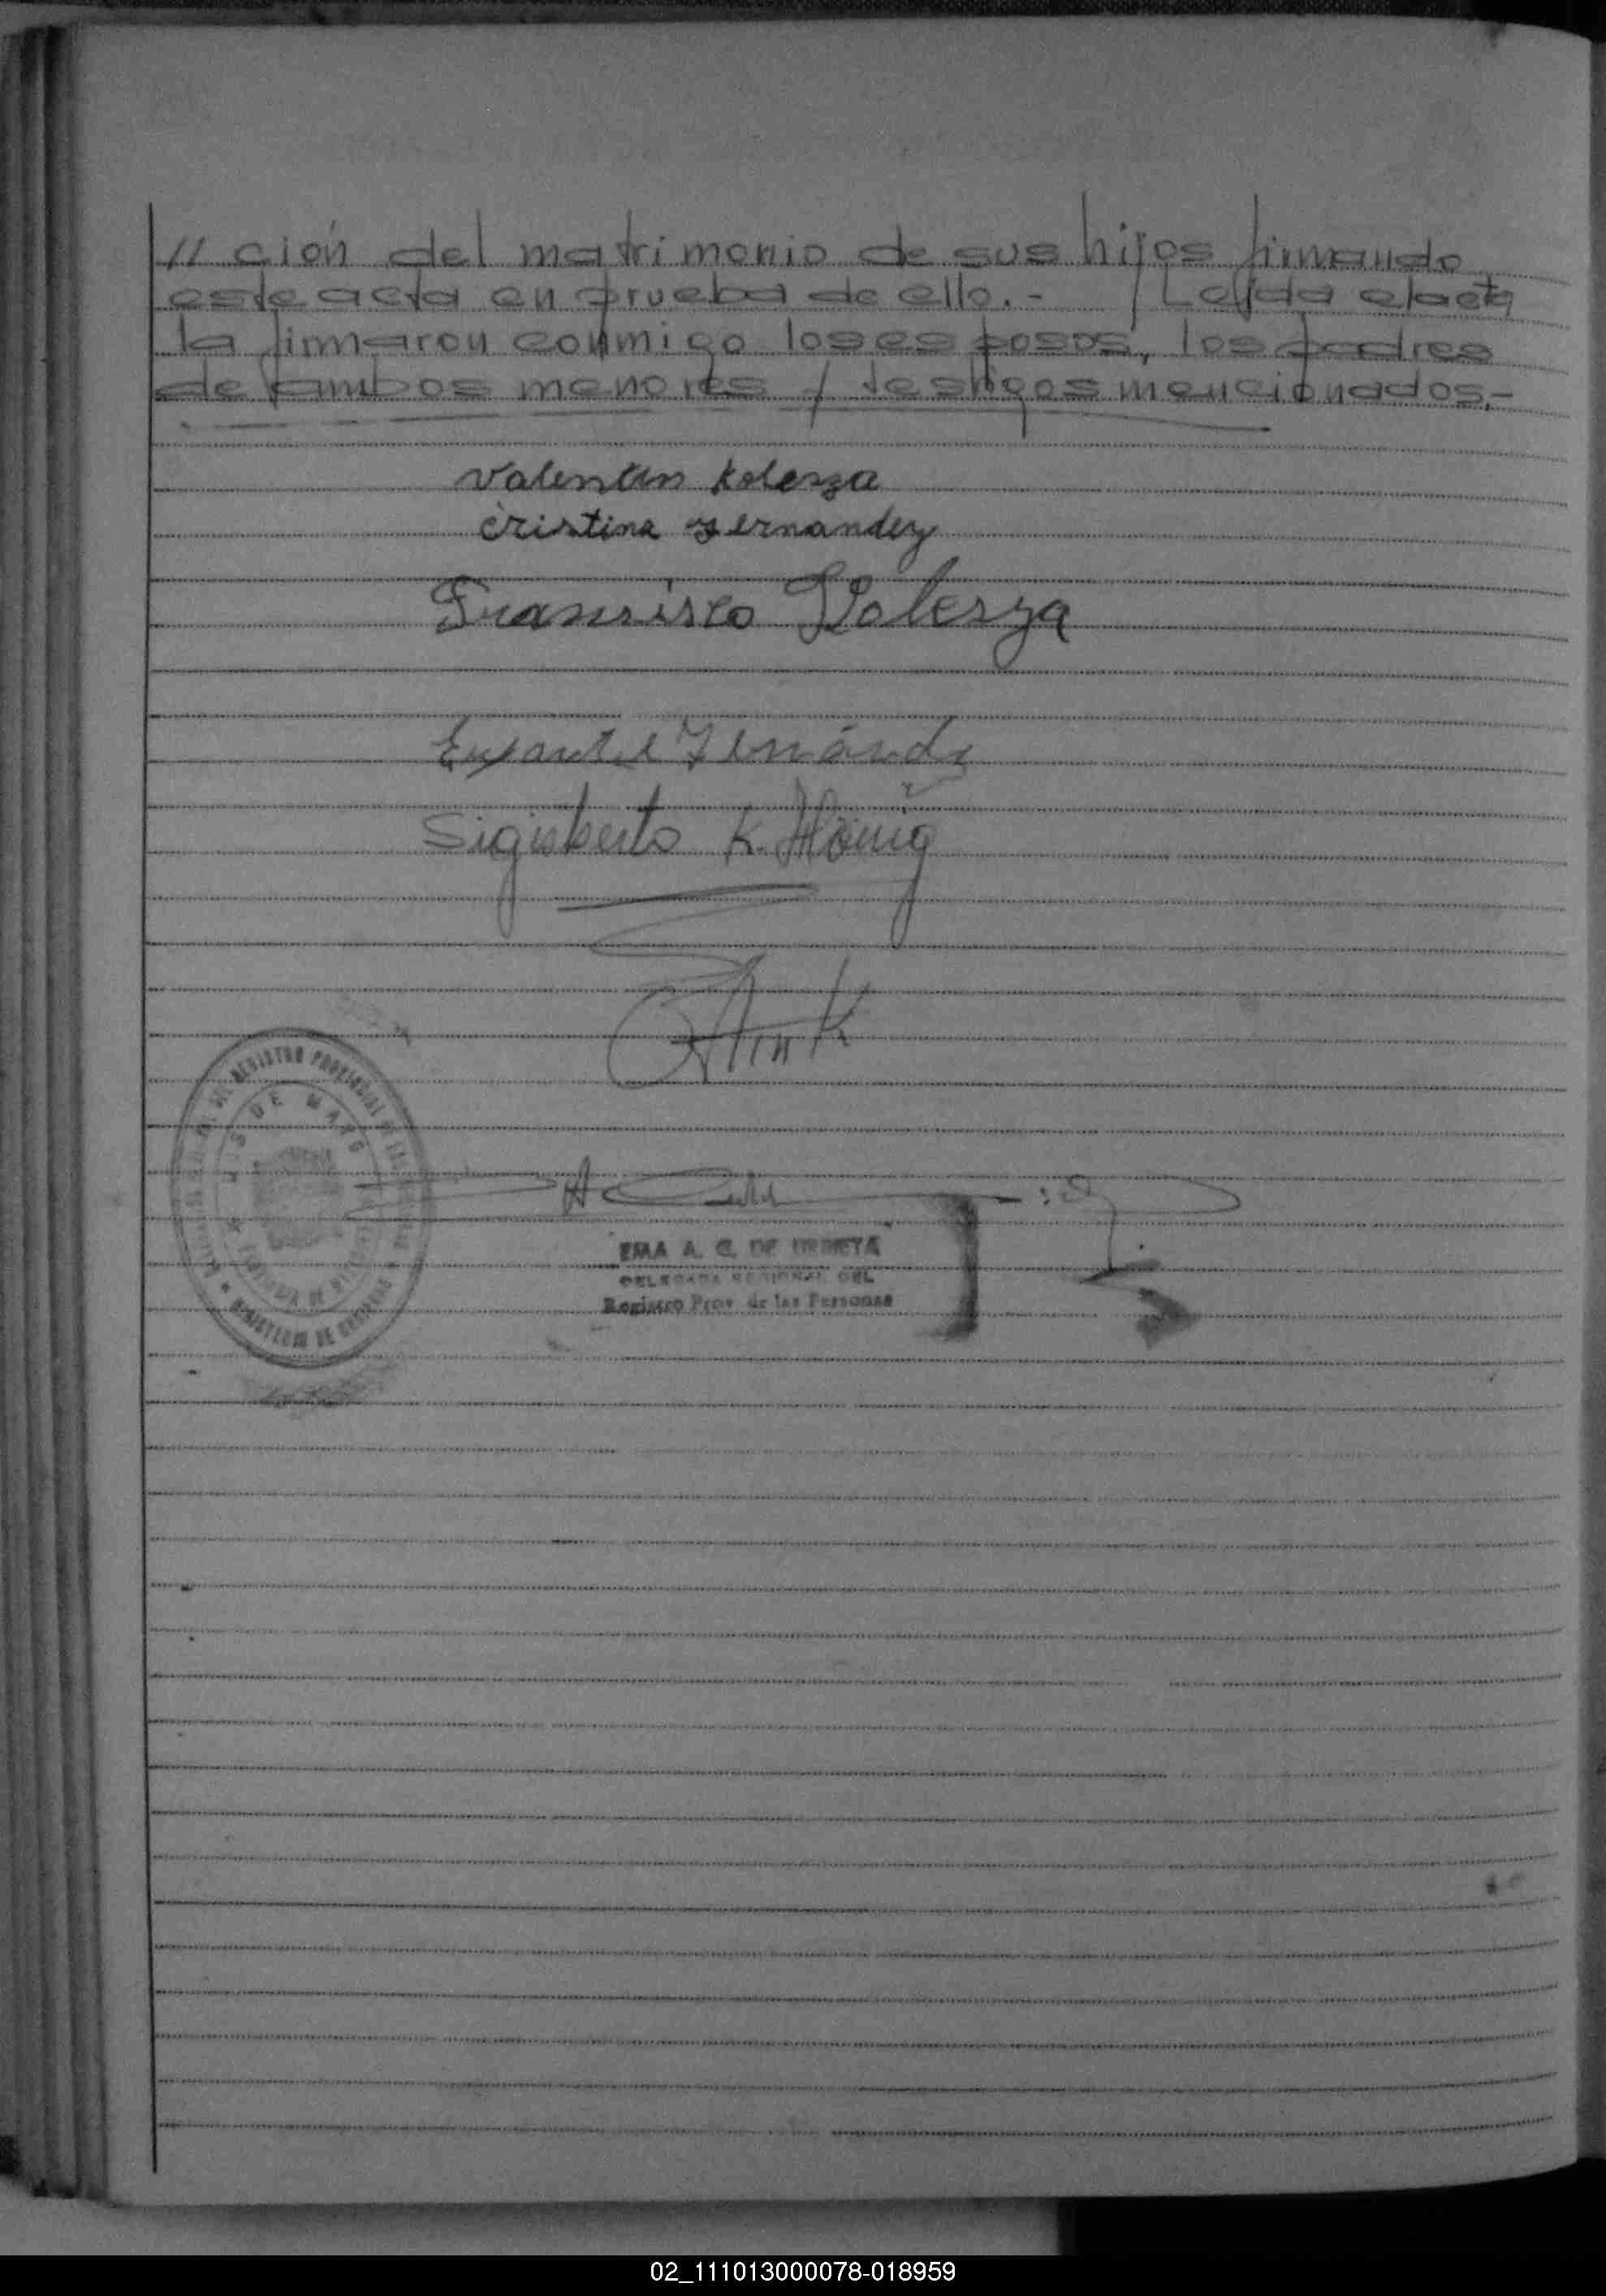 // ción del matrimonio de sus hijos firmando
este acta en prueba de ello.- Leída el acta
la firmaron conmigo los esposos, los padres
de ambos menores y testigos mencionados.-
Valentin Kolesza
Cristina Fernandez
Francisco Kolesza
Sigisberto K. König
REGISTRO PROVINCIAL DE LAS
DE MAYO
MINISTERIO DE
EMA A. G. DE URRETA
DELEGADA REGIONAL DEL
Registro Prov. de las Personas
02_111013000078-018959